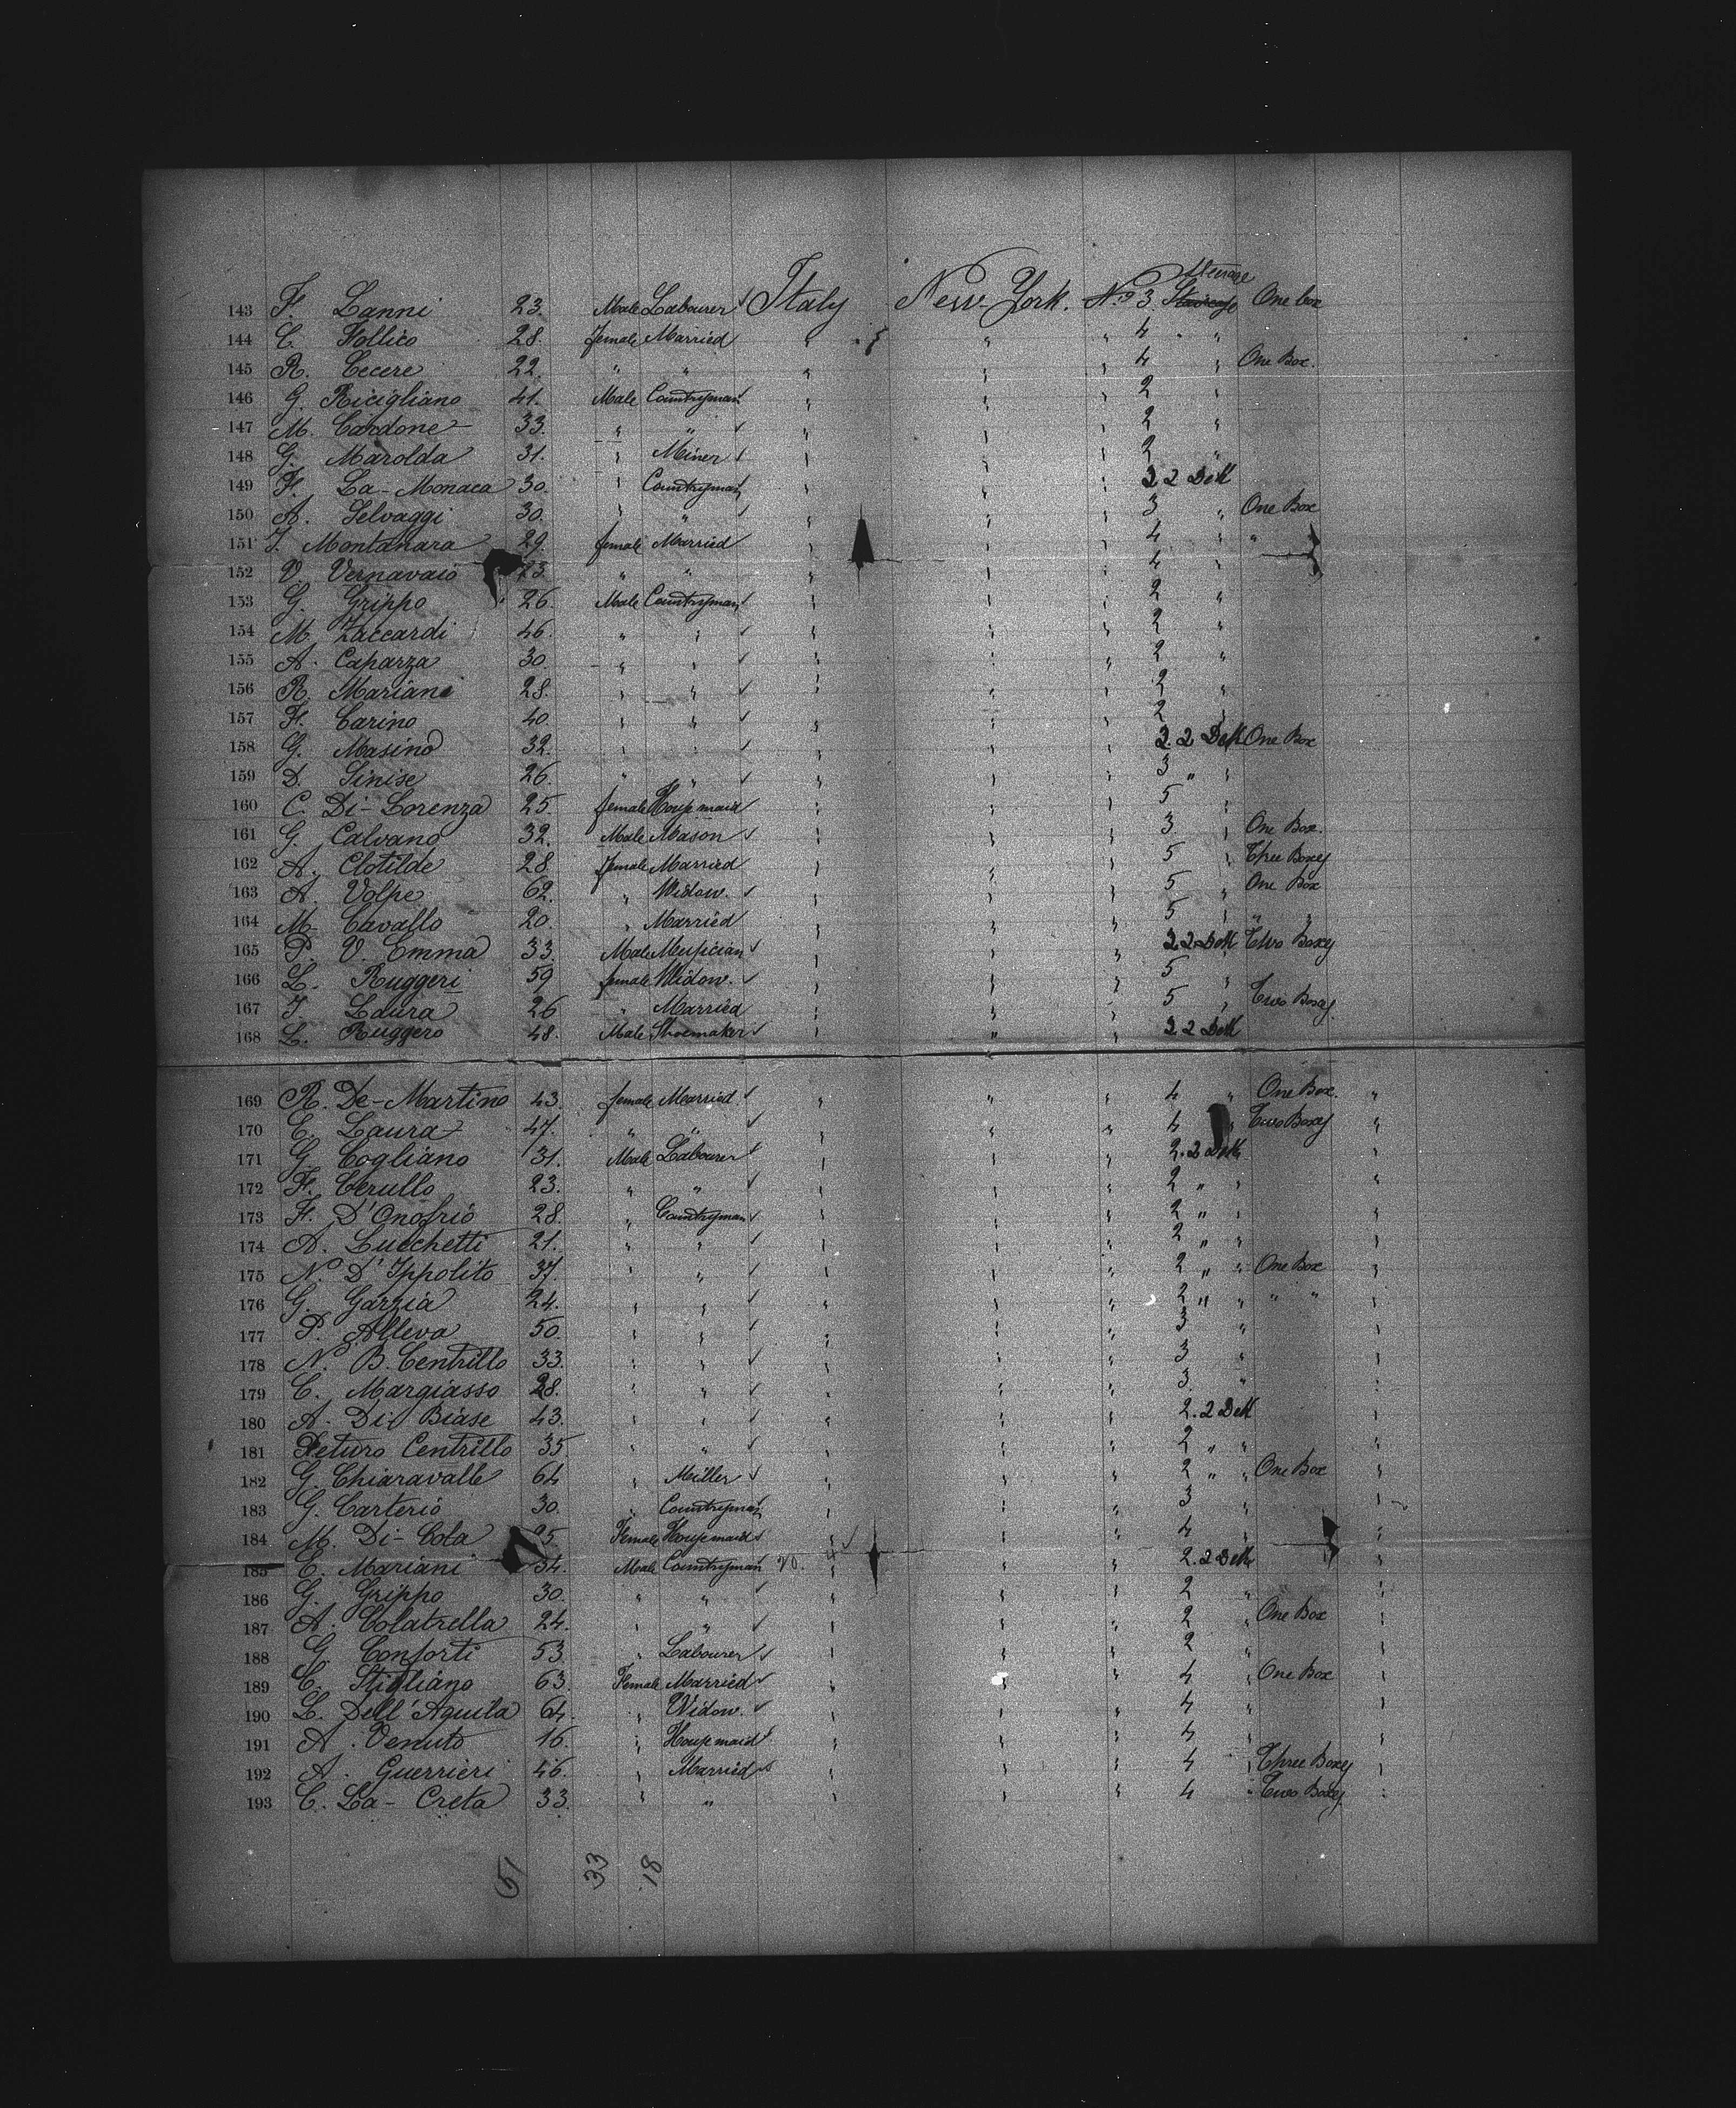 143 F. Lanni 23. Male Labourer Italy New-York. No 3. Steerage One box
144 C. Follico 28. female Married " " " 4 "
145 R. Cecere 22. " " " " " 4 " One Box.
146 G. Ricigliano 41. Male Countryman " " " 2 "
147 M. Cardone 33. " " " " " 2 "
148 G. Marolda 31. " Miner " " " 2 "
149 F. La-Monaca 30. " Countryman " " " 2. 2 Deck
150 A. Selvaggi 30. " " " " " 3 " One Box
151 Montanara 29. female Married " " " 4 " "
152 V. Vernavaio 23. " " " " " 4 "
153 G. Grippo 26. Male Countryman " " " 2 "
154 M. Zaccardi 46. " " " " " 2 "
155 A. Caparza 30. " " " " " 2 "
156 R. Mariani 28. " " " " " 2 "
157 F. Carino 40. " " " " " 2 "
158 G. Masino 32. " " " " " 2. 2 Deck One Box
159 D. Sinise 26. " " " " " 3 " "
160 C. Di-Lorenza 25. female Housemaid " " " 5 "
161 G. Calvano 32. Male Mason " " " 3. " One Box.
162 A. Clotilde 28. female Married " " " 5 " Three Boxes
163 A. Volpe 62. " Widow. " " " 5 " One Box
164 M. Cavallo 20. " Married " " " 5 " " "
165 P. V. Emma 33. Male Musician " " " 2 2 Deck Two Boxes
166 L. Ruggeri 59 female Widow. " " " 5 "
167 Laura 26 " Married " " " 5 " Two Boxes.
168 L. Ruggero 48. Male Shoemaker " " " 2 2 Deck
169 R. De-Martino 43. female Married " " " 4 " One Box. "
170 C. Laura 47. " " " " " 4 " Two Boxes "
171 G. Cogliano 31. Male Labourer " " " 2. 2 Deck "
172 F. Cerullo 23. " " " " " 2 " " "
173 F. D'Onofrio 28. " Countryman " " " 2 " " "
174 A. Lucchetti 21. " " " " " 2 " " "
175 N. D'Ippolito 37. " " " " " 2 " " One Box "
176 G. Garzia 24. " " " " " 2 " " " " "
177 P. Alleva 50. " " " " " 3 " "
178 N. B. Centrillo 33. " " " " " 3 " "
179 C. Margiasso 28. " " " " " 3. " "
180 A. Di Biase 43. " " " " " 2. 2 Deck "
181 Centrillo 35 " " " " " 2 " " "
182 G. Chiaravalle 64 " Miller " " " 2 " " One Box "
183 G. Carterio 30. " Countryman " " " 3 " "
184 M. Di-Cola 25. Female Housemaid " " " 4 " "
185 C. Mariani 34. Male Countryman " " " 2. 2 Deck "
186 G. Grippo 30. " " " " " 2 " "
187 A. Colatrella 24. " " " " " 2 " One Box "
188 G. Conforti 53 " Labourer " " " 2 " "
189 C. Stigliano 63. Female Married " " " 4 " One Box "
190 L. Dell'Aquila 64. " Widow. " " " 4 " "
191 A. Venuto 16. " Housemaid " " " 4 " "
192 A. Guerrieri 46. " Married " " " 4 " Three Boxes "
193 C. La-Creta 33. " " " " " 4 " Two Boxes. "
51 33 18